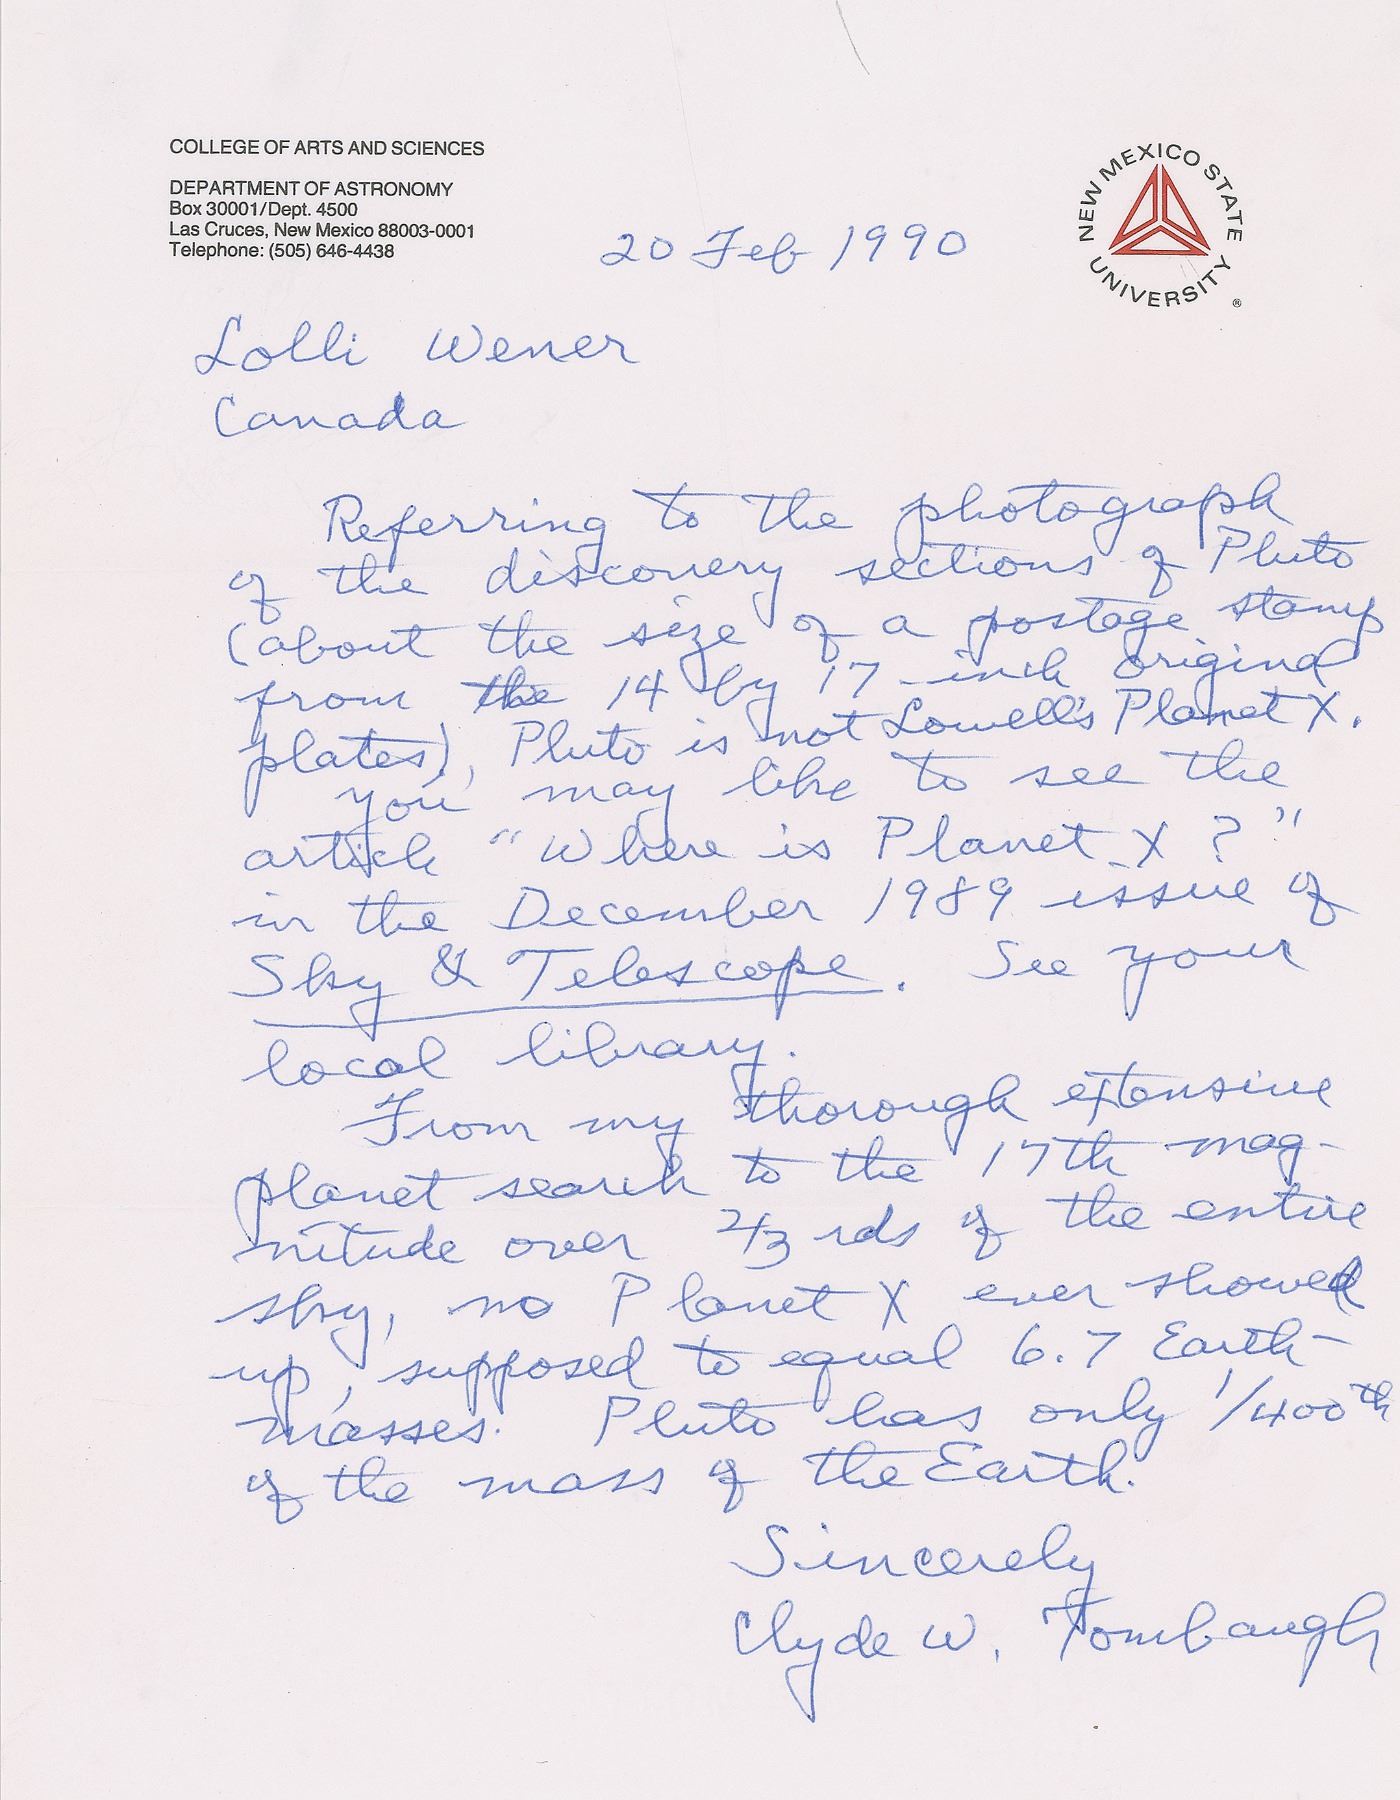 COLLEGE OF ARTS AND SCIENCES
DEPARTMENT OF ASTRONOMY
Box 30001/Dept. 4500
Las Cruces, New Mexico 88003-0001
Telephone: (505) 646-4438
NEW MEXICO STATE UNIVERSITY ®
20 Feb 1990
Lolli Wener
Canada
Referring to the photograph
of the discovery sections of Pluto
(about the size of a postage stamp
from the 14 by 17 inch original
plates), Pluto is not Lowell's Planet X.
You may like to see the
article "Where is Planet X?"
in the December 1989 issue of
Sky & Telescope. See your
local library.
From my thorough extensive
planet search to the 17th mag-
nitude over 2/3 rds of the entire
sky, no Planet X ever showed
up, supposed to equal 6.7 Earth-
masses. Pluto has only 1/400th
of the mass of the Earth.
Sincerely
Clyde W. Tombaugh